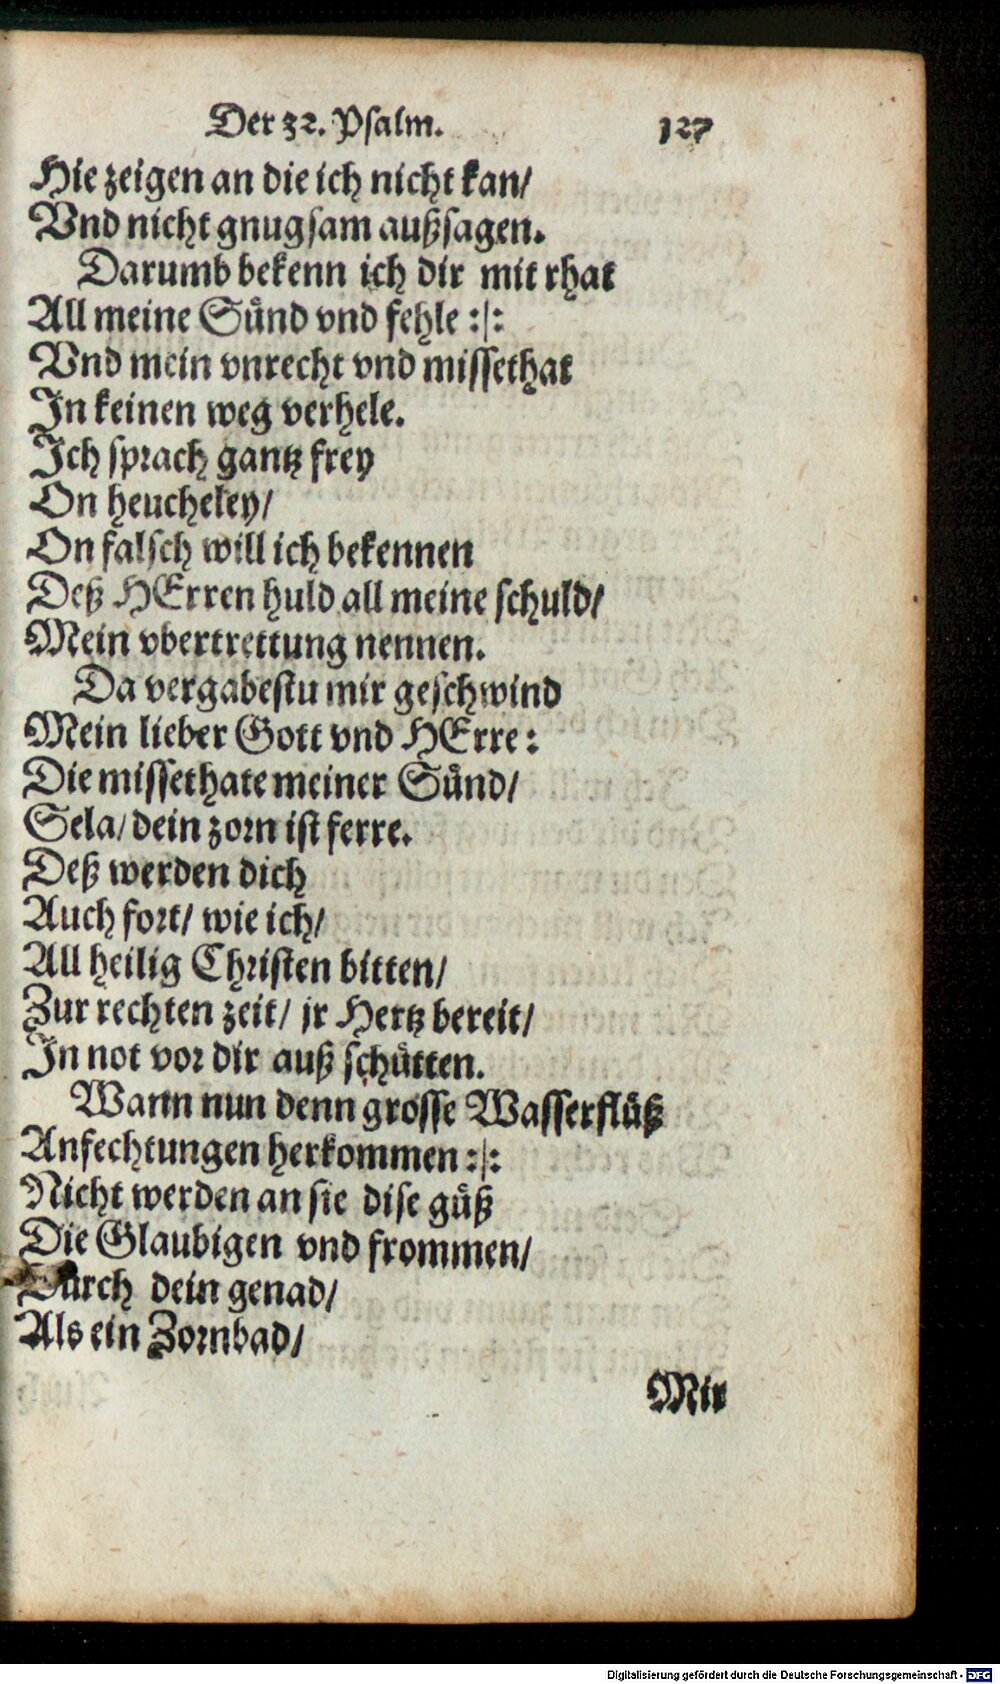 Der 32. Psalm. 127
Hie zeigen an die ich nicht kan/
Vnd nicht gnugsam außsagen.
Darumb bekenn ich dir mit rhat
All meine Sünd vnd fehle :/:
Vnd mein vnrecht vnd missethat
In keinen weg verhele.
Ich sprach gantz frey
On heucheley/
On falsch will ich bekennen
Deß HErren huld all meine schuld/
Mein vbertrettung nennen.
Da vergabestu mir geschwind
Mein lieber Gott vnd HErre:
Die missethate meiner Sünd/
Sela/ dein zorn ist ferre.
Deß werden dich
Auch fort/ wie ich/
All heilig Christen bitten/
Zur rechten zeit/ jr Hertz bereit/
In not vor dir auß schütten.
Wann nun denn grosse Wasserflüß
Anfechtungen herkommen :/:
Nicht werden an sie dise güß
Die Glaubigen vnd frommen/
Durch dein genad/
Als ein Zornbad/
Mir
Digitalisierung gefördert durch die Deutsche Forschungsgemeinschaft - DFG